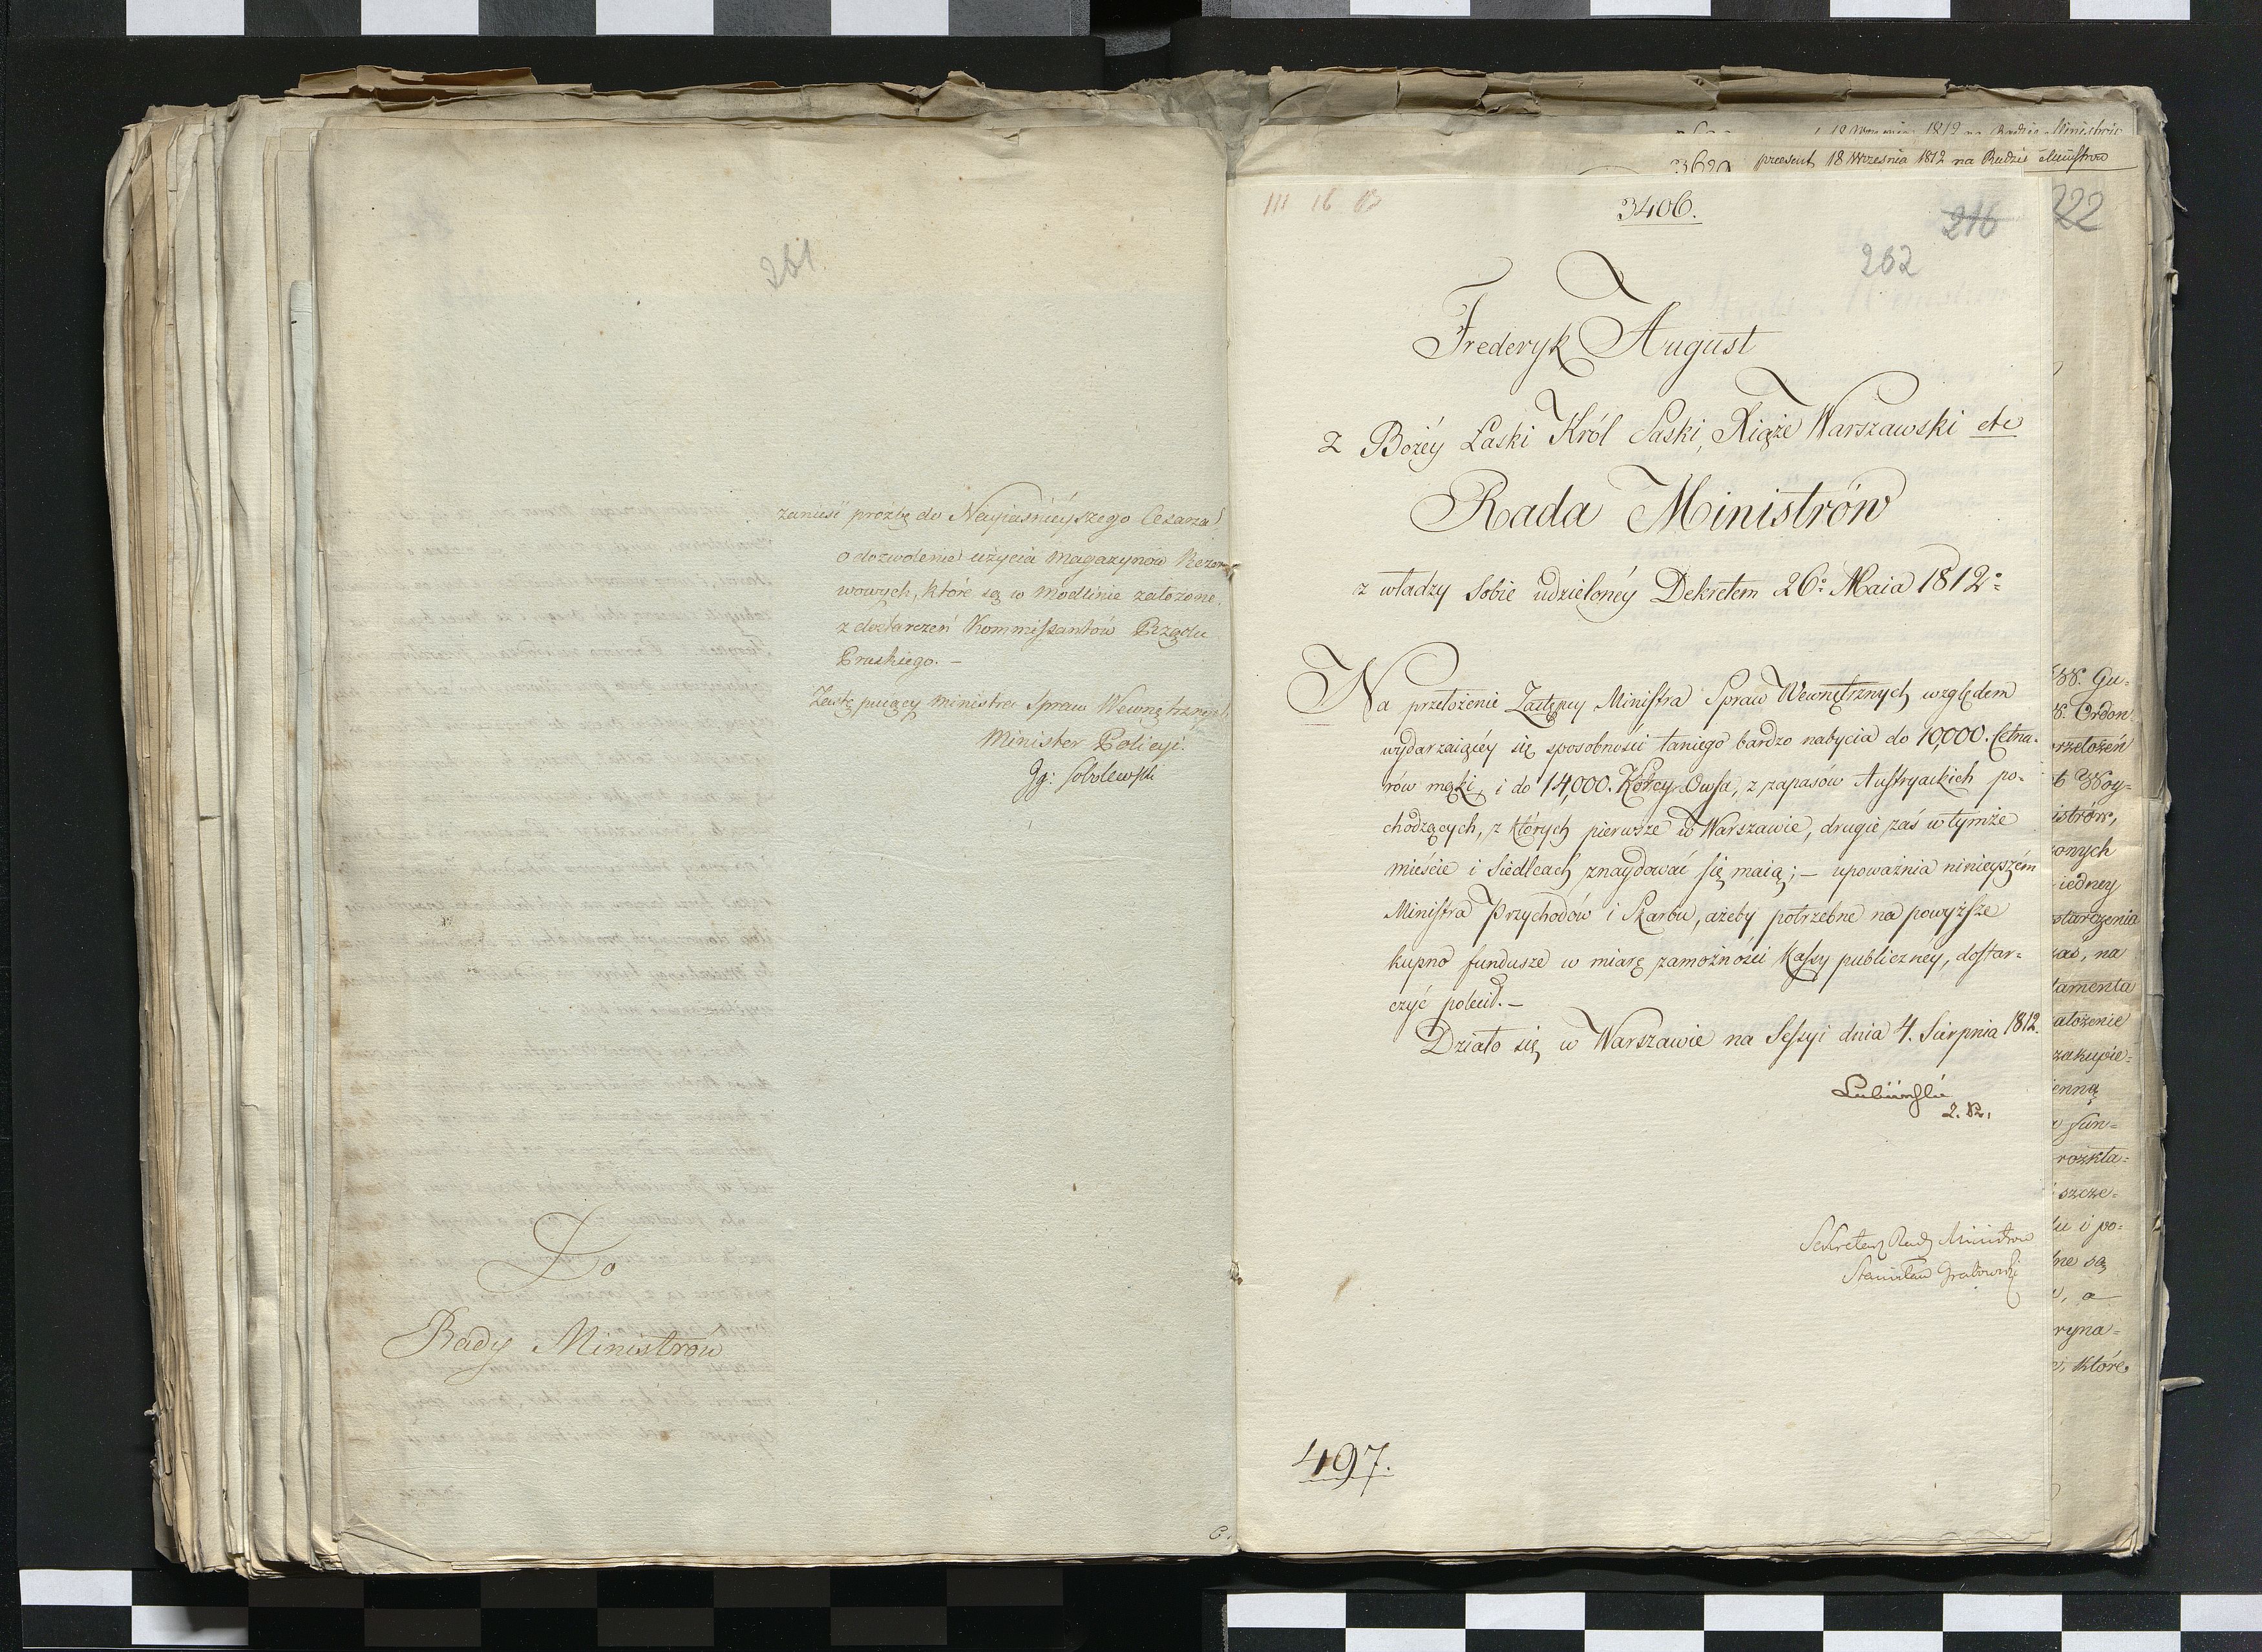 261.
zanieść proźbę do Nayiaśnieyszego Cesarza
o dozwolenie użycia Magazynów Rezer
wowych, które są w Modlinie założone,
z dostarczeń Kommissantów Rządu
Pruskiego. —
Zastępuiący Ministra Spraw Wewnętrznych
Minister Policyi.
Jg: Sobolewski
Do
Rady Ministrów
1812 na Radzie Ministrów
3620 praesent 18 Września 1812 na Radzie Ministrów
222
III 16
3406.
216
262
Frederyk August
z Bożéy Łaski Król Saski, Xiąże Warszawski etc
Rada Ministrów
z władzy Sobie udzielonéy Dekretem 26º Maia 1812º
Na przełożenie Zastępcy Ministra Spraw Wewnętrznych względem
wydarzaiącéy się sposobności taniego bardzo nabycia do 10,000. Cetna-
rów mąki, i do 14,000. Korcy Owsa, z zapasów Austryackich po-
chodzących, z których pierwsze w Warszawie, drugie zaś w tymże
mieście i Siedlcach znaydować się maią; — upoważnia ninieyszém
Ministra Przychodów i Skarbu, ażeby potrzebne na powyższe
kupno fundusze w miarę zamożności Kassy publicznéy, dostar-
czyć polecił. —
Działo się w Warszawie na Sessyi dnia 4. Sierpnia 1812.
Lubieński
Sekretarz Rady Ministrów
Stanisław Grabowski
497.
Gu-
Ordon
przełożeń
Woy-
istrów,
onych
iedney
starczenia
zaś, na
tamenta
ałożenie
zakupie-
enną
fun-
rozkła-
szcze-
i po-
ne są
a
ryna-
które